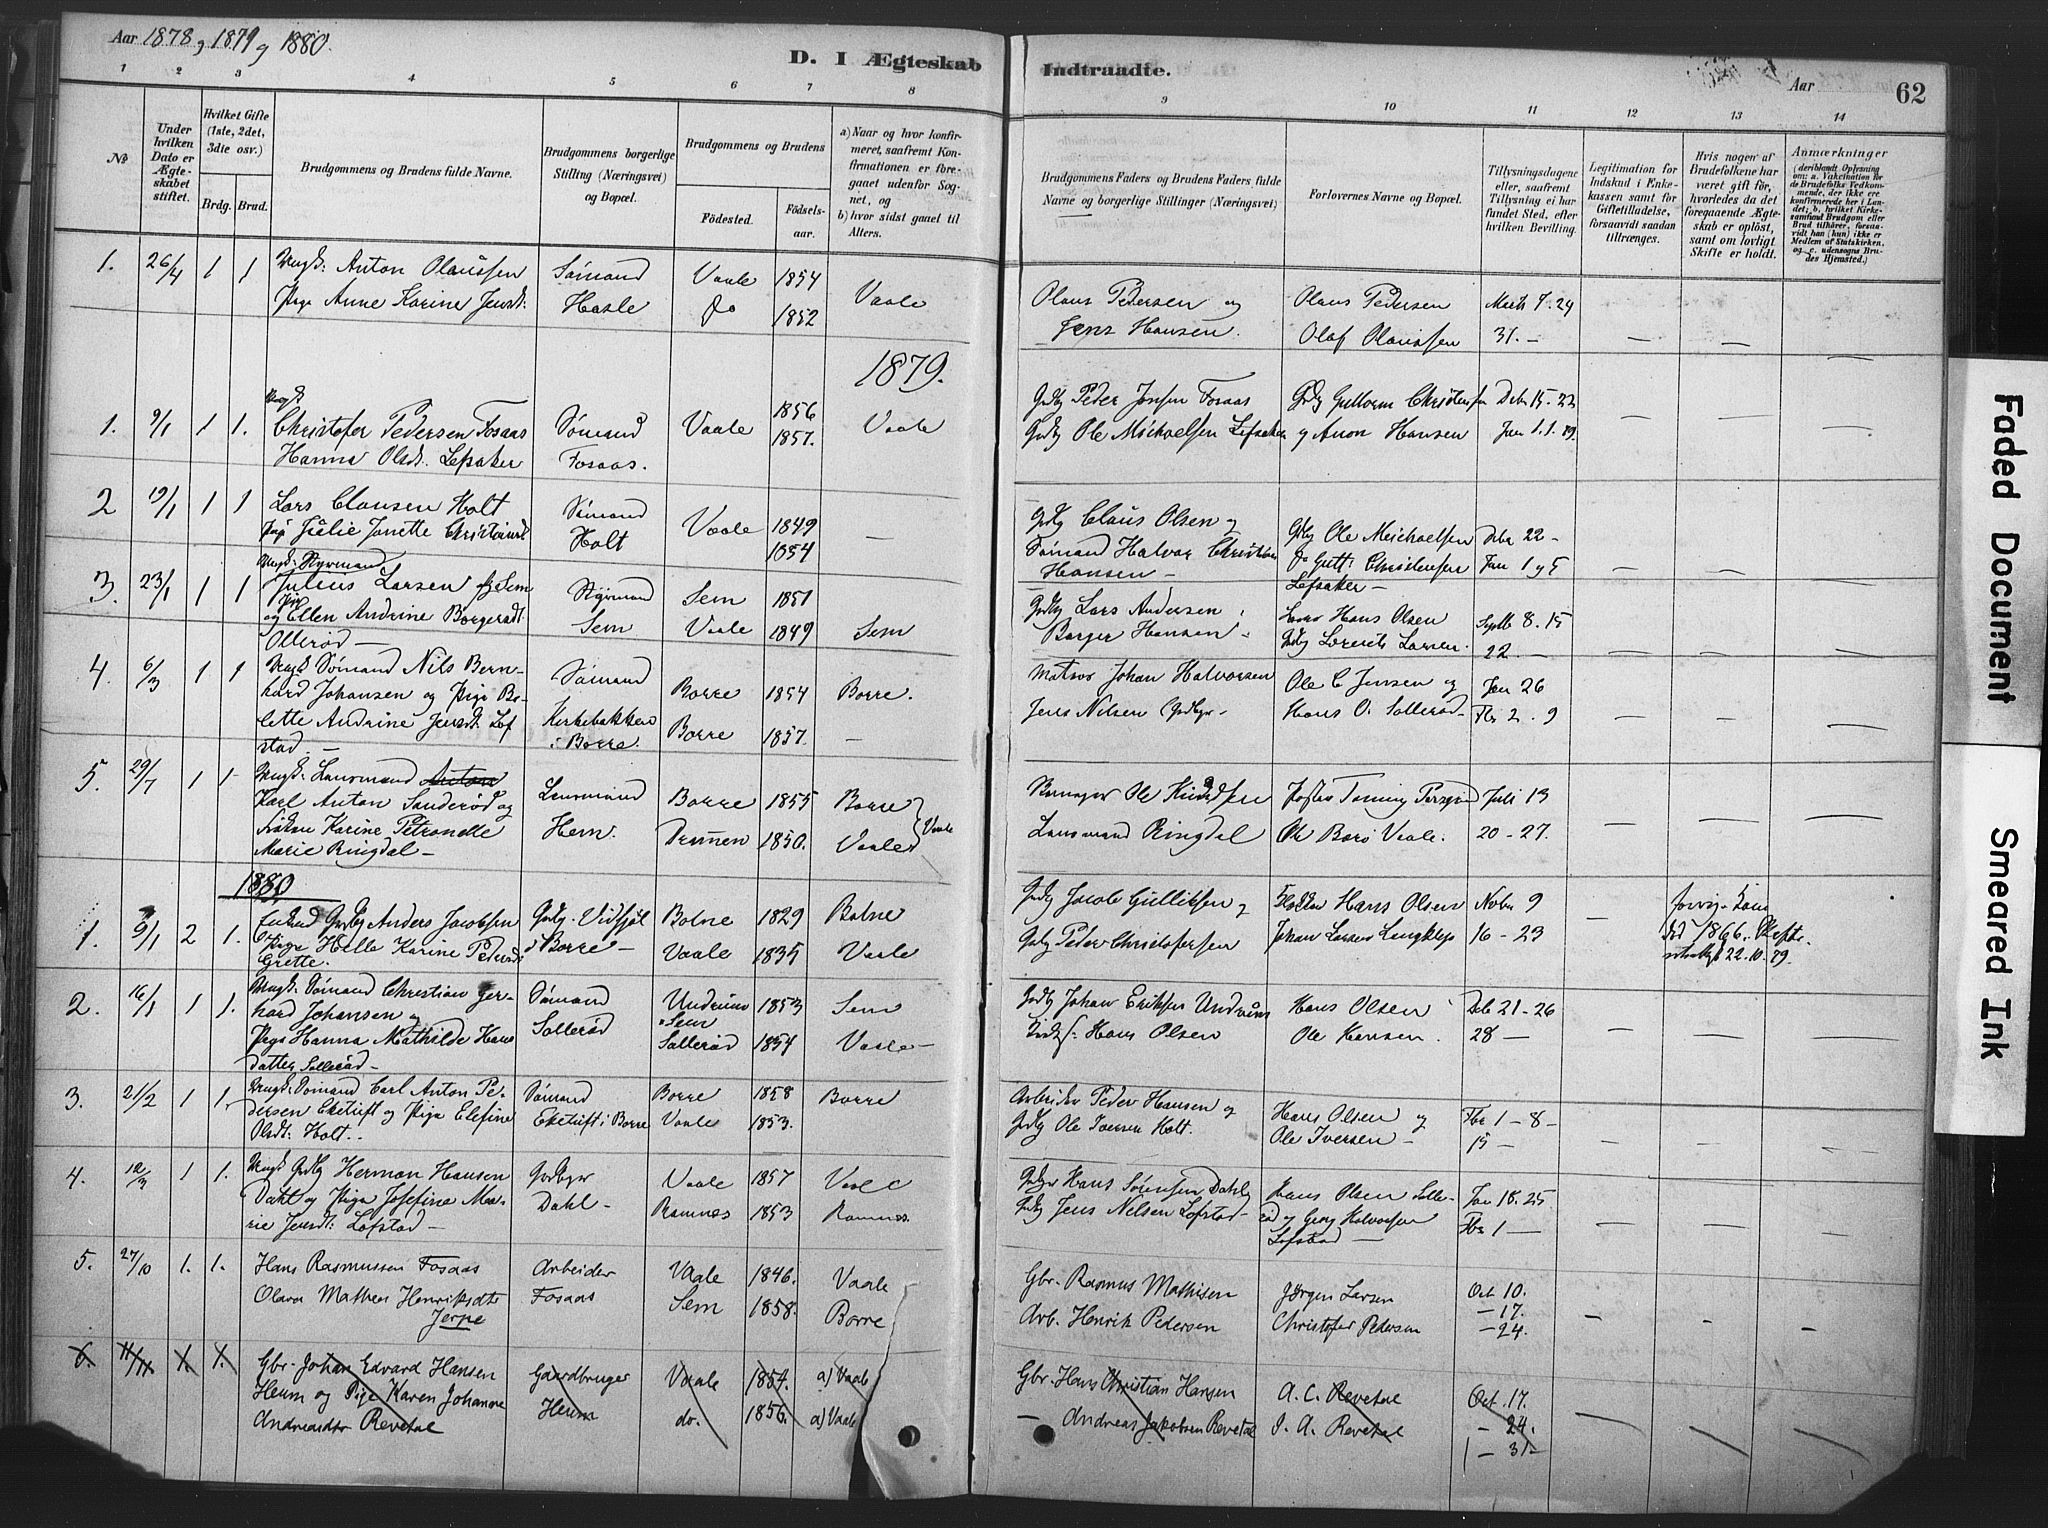 Aar 1878 og 1879 og 1880.
D. I Ægteskab Indtraadte.
Aar
62
1 2 3 4 5 6 7 8 9 10 11 12 13 14
No
Under hvilken Dato er Ægteskabet stiftet.
Hvilket Gifte (1ste, 2det, 3die osv.)
Brdg. Brud.
Brudgommens og Brudens fulde Navne.
Brudgommens borgerlige Stilling (Næringsvei) og Bopæl.
Brudgommens og Brudens
Fødested. Fødselsaar.
a) Naar og hvor konfirmeret, saafremt Konfirmationen er foregaaet udenfor Sognet, og
b) hvor sidst gaaet til Alters.
Brudgommens Faders og Brudens Faders fulde Navne og borgerlige Stillinger (Næringsvei)
Forlovernes Navne og Bopæl.
Tillysningsdagene eller, saafremt Tillysning ei har fundet Sted, efter hvilken Bevilling.
Legitimation for Indskud i Enkekassen samt for Giftetilladelse, forsaavidt saadan tiltrænges.
Hvis nogen af Brudefolkene har været gift før, hvorledes da det foregaaende Ægteskab er opløst, samt om lovligt Skifte er holdt.
Anmærkninger
(deriblandt Oplysning om: a. Vakcination for de Brudefolks Vedkommende, der ikke ere konfirmerede her i Landet; b. hvilket Kirkesamfund Brudgom eller Brud tilhører, forsaavidt han (hun) ikke er Medlem af Statskirken, og c. udensogns Brudes Hjemsted.)
1. 26/4 1 1 Ungk: Anton Olaussen Sømand Vaale 1854 Vaale Olaus Pedersen og Olaus Pedersen Marts 7. 24
Pige Anne Karine Jensdt: Hasle do 1852 Jens Hansen. Olaf Olaussen 31. –
1879.
1. 9/1 1 1. Ungk Christofer Pedersen Fosaas Sømand Vaale 1856 Vaale Grdbg Peder Fosaas Gullorm Christensen Debr 15-22
Hanna Olsdt. Lefsaker Fosaas. 1857. Grdbg Ole Michaelsen Lefsaker og Anon Hansen Jan 1.
2 19/1 1 1 Lars Clausen Holt Sømand Vaale 1849 — Claus Olsen og Ole Michaelsen Debr 22 –
Julie Janette Holt 1854 Sømand Halvor Hansen – Lefsaker – Jan 1 og 5
3. 23/1 1 1 Ungk: Styrmand Julius Larsen Sem Styrmand Sem 1851 Lars Andersen Hans Olsen Septb 8. 15
og Ellen Andrine Borgersdt. Ollerød – Sem Vaale 1849 Sem Borger Hansen Lorents Larsen. 22 –
4. 6/3 1 1 Ungk Sømand Nils Bernhard Johansen og Pige Bolette Andrine Jensdt. Lofstad. – Sømand Borre 1854 Borre. Matros Johan Halvorsen Ole C Jensen og Jan 26
Kirkebakken i Borre. Borre 1857. — Jens Nilsen Grdbgr – Hans O. Sollerød – Fbr 2. 9
5. 29/7 1 1 Ungk: Lensmand Karl Anton Sanderød og Karine Petronelle Marie Ringdal – Lensmand Borre 1855 Borre Ole Juli 13
Hem. Drammen 1850. Vaale } Vaale Lensmand Ringdal Ole Vaale. 20 – 27.
1880
1. 9/1 2 1. Enkmd Grdbg Anders Jacobsen Grdbg. Botne 1829 Botne Grdbg Jacob Gulliksen og Hans Olsen Novbr 9
Pige Helle Karine Pedersdt Grette. i Borre – Vaale 1835 Vaale Grdbg Peder Christofersen Johan Larsen 16 – 23
død 1866. 22. 10. 79.
2. 16/1 1 1. Ungk. Sømand Christian Gerhard Johansen og Sømand Undrum i Sem 1853 Sem Grdbg Johan Eriksen Undrum Hans Olsen Deb 21-26
Pige Hanna Mathilde Hansdatter Sollerød – Sollerød Sollerød 1854 Vaale – Hans Olsen Ole Hansen. 28 –
3. 21/2 1 1. Ungk: Sømand Carl Anton Pedersen Eketuft og Pige Elefine Olsdt: Holt. Sømand Borre 1858 Borre Arbeider Peder Hansen og Hans Olsen og Fbr 1 – 8 –
Eketuft i Borre Vaale 1853. Grdbg Ole Iversen Holt. Ole Iversen – 15 –
4. 12/3 1 1. Ungk Grdbg Herman Hansen Dahl og Pige Josefine Marie Jensdt: Lofstad – Grdbgr Vaale 1857 Vaale Grdbgr Hans Sørensen Dahl og Hans Olsen Sollerød Jan 18. 25
Dahl – Ramnes 1853 Ramnes. Grdbg Jens Nilsen Lofstad – og Georg Halvorsen Lofstad — Fbr 1 –
5. 27/10 1. 1. Hans Rasmussen Fosaas Arbeider Vaale 1846. Vaale Gbr. Rasmus Mathisen Jørgen Larsen Oct 10.
Olava Mathea Henriksdtr Jerpe Fosaas Sem 1858. Borre Arb. Henrik Pedersen Christofer Pedersen – 17. – 24.
6. 11/11 1. 1. Gbr. Johan Edvard Hansen Gaardbruger Vaale 1854. a) Vaale Gbr. Hans Christian Hansen A. C. Revetal Oct. 17.
Heum og Pige Karen Johanne Andreasdtr Revetal Heum do. 1856. a) Vaale — Andreas Jakobsen Revetal I. A. Revetal – 24. – 31 –
Faded Document
Smeared Ink